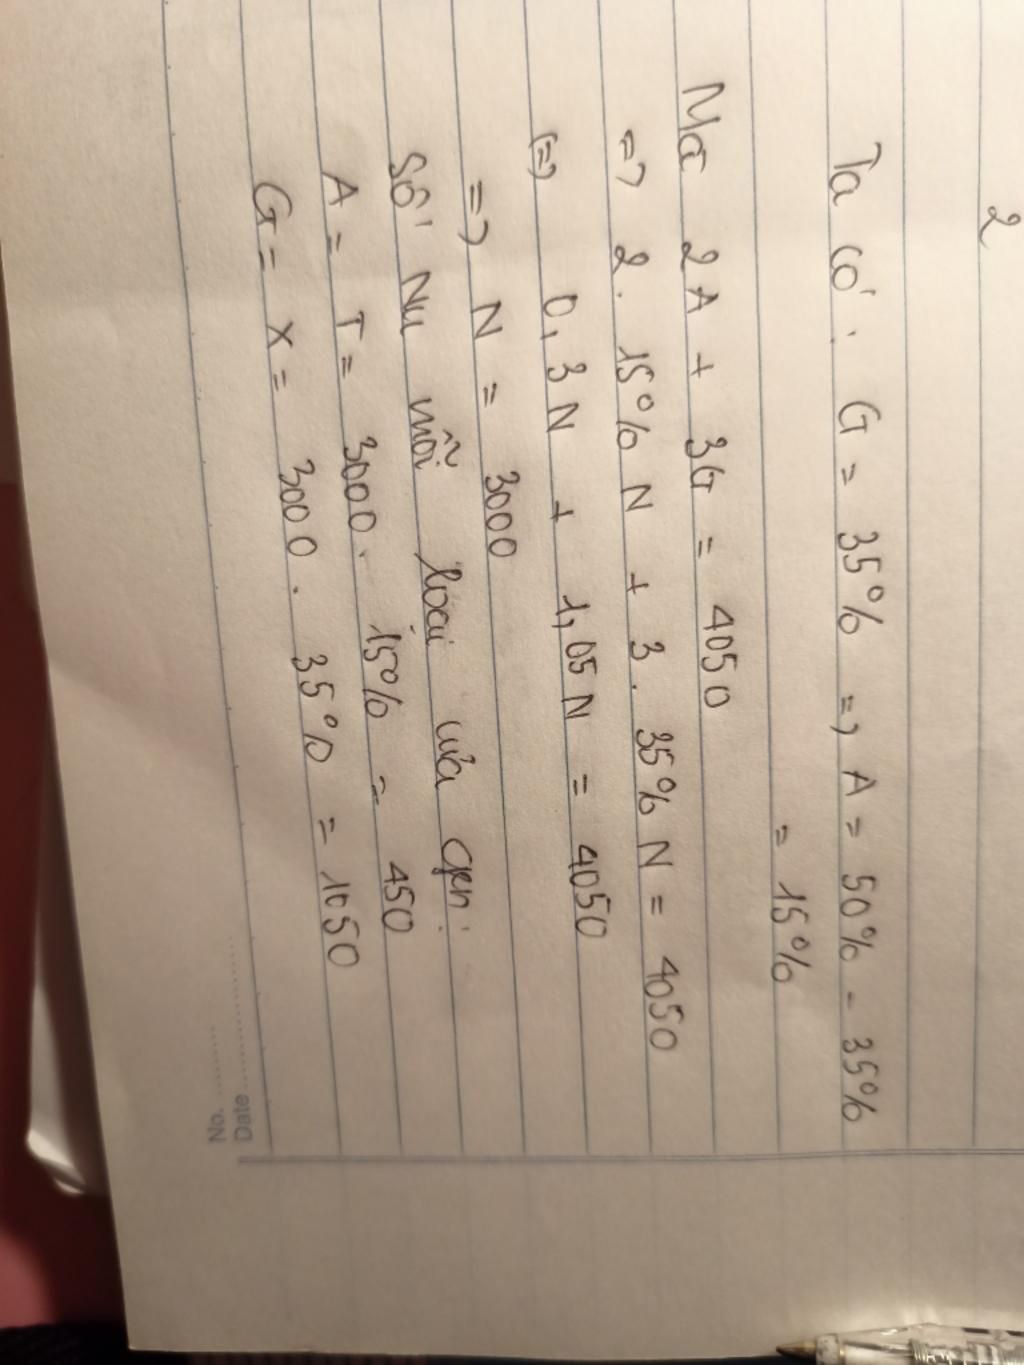 2
Ta có: G = 35% => A = 50% - 35%
= 15%
Mà 2A + 3G = 4050
=> 2. 15% N + 3. 35% N = 4050
(=) 0,3N + 1,05N = 4050
=> N = 3000
Số Nu mỗi loại của gen:
A = T = 3000. 15% = 450
G = X = 3000. 35% = 1050
No. ............
Date ..............................